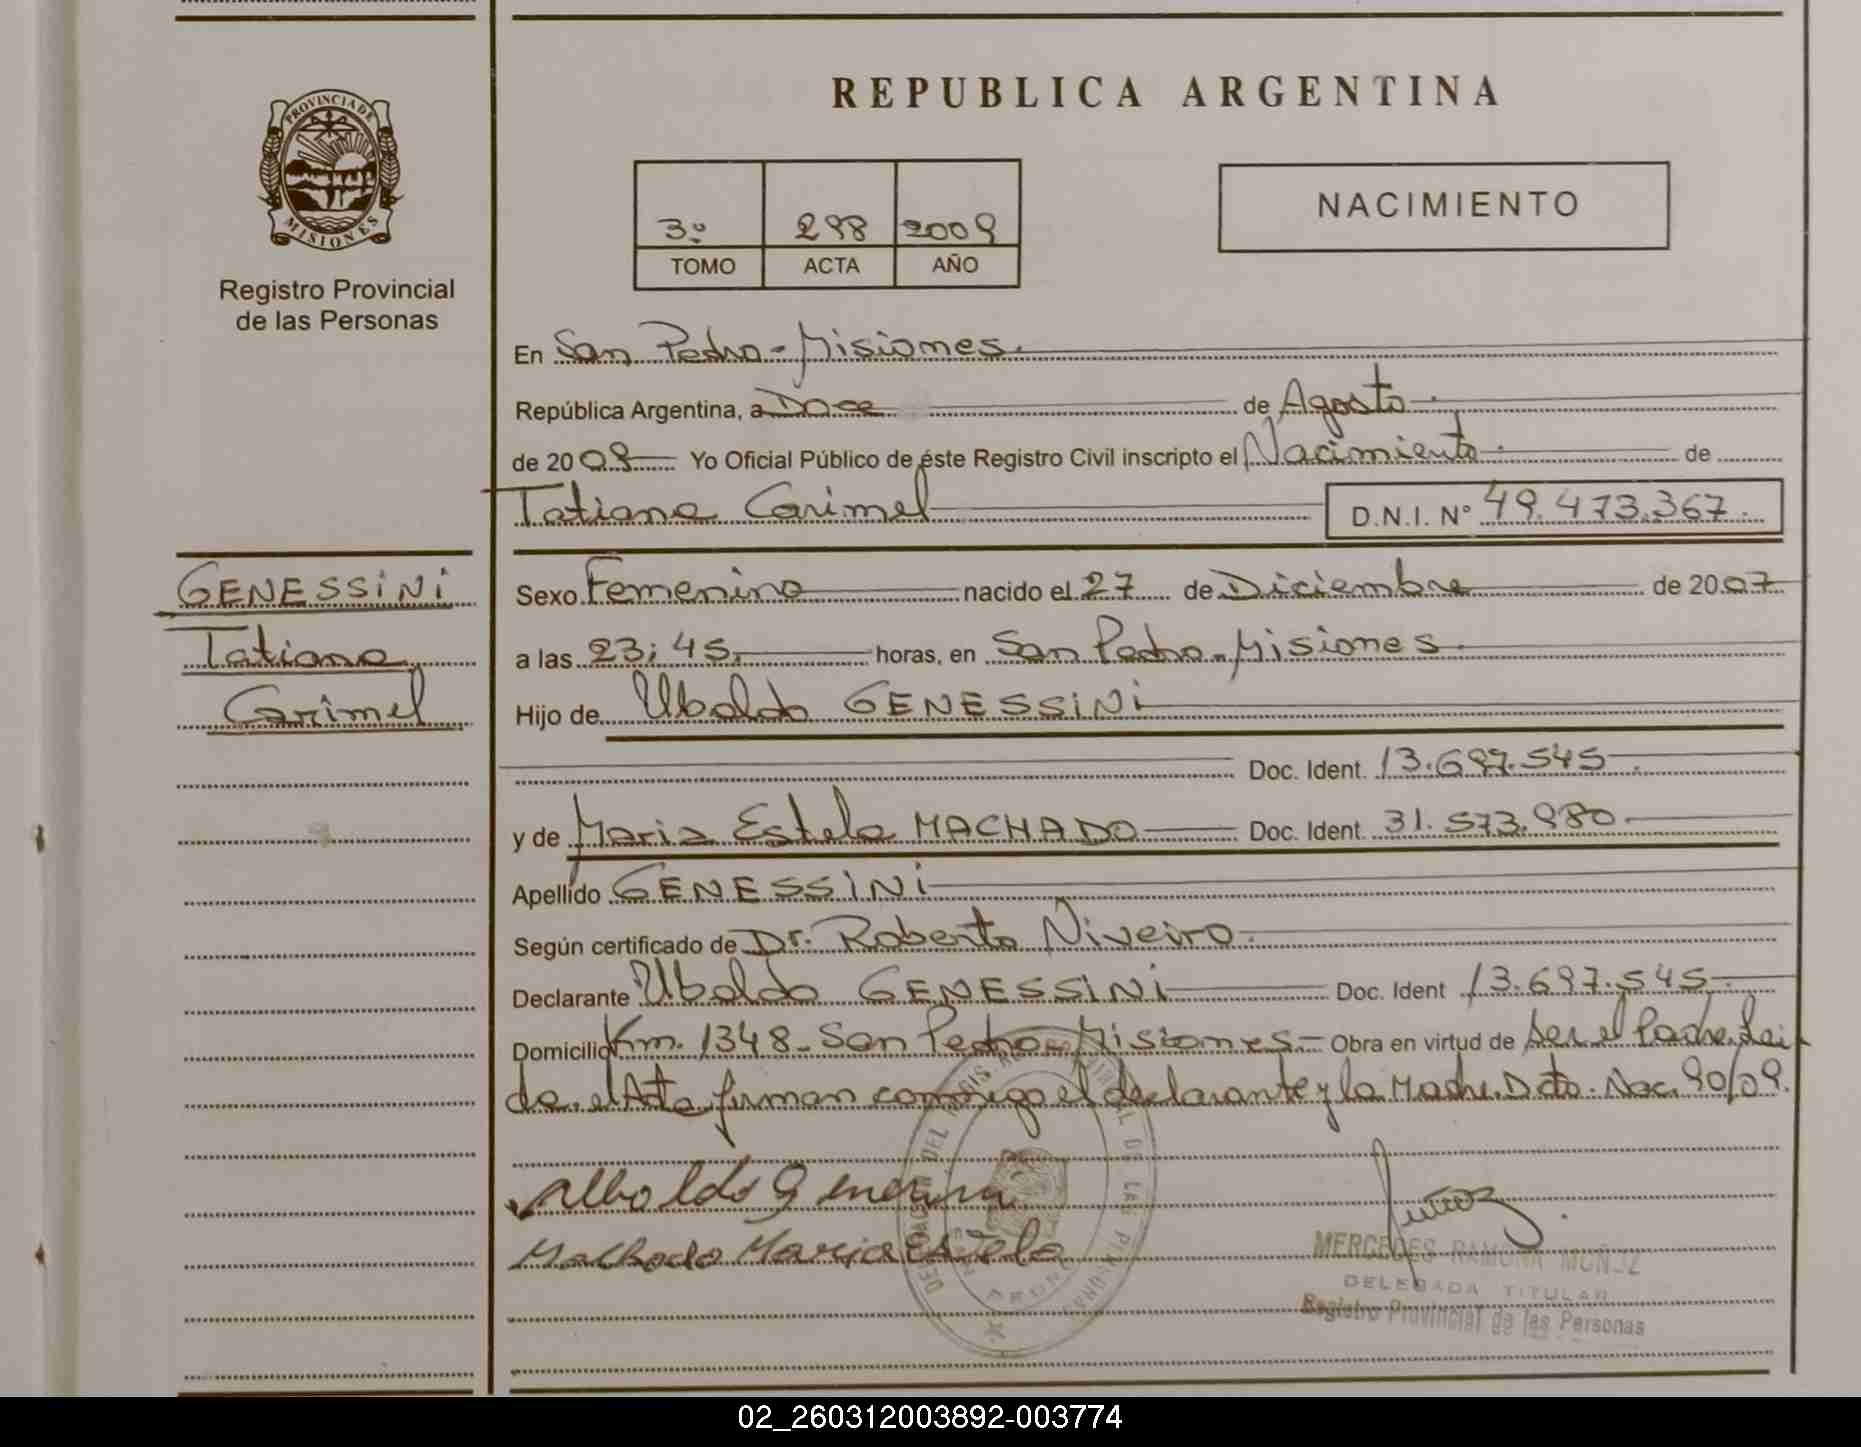 PROVINCIA DE
MISIONES
Registro Provincial
de las Personas
REPUBLICA ARGENTINA
3º 298 2009
TOMO ACTA AÑO
NACIMIENTO
En San Pedro - Misiones.
República Argentina, a Doce de Agosto.
de 2009 Yo Oficial Público de éste Registro Civil inscripto el Nacimiento. de
Tatiana Carimel D.N.I. Nº 49.473.367.
GENESSINI
Tatiana
Carimel
Sexo Femenino nacido el 27 de Diciembre de 2007
a las 23:45. horas, en San Pedro - Misiones.
Hijo de Ubaldo GENESSINI
Doc. Ident. 13.697.545.
y de Maria Estela MACHADO Doc. Ident. 31.573.980.
Apellido GENESSINI
Según certificado de Dr. Roberto Niveiro.
Declarante Ubaldo GENESSINI Doc. Ident 13.697.545.
Domicilio Km. 1348 - San Pedro - Misiones - Obra en virtud de Ser el Padre. Lei
da el Acta firman conmigo el declarante y la Madre. Dcto. Nac. 90/09.
Machado Maria Estela
MERCEDES RAMONA MUÑOZ
DELEGADA TITULAR
Registro Provincial de las Personas
02_260312003892-003774